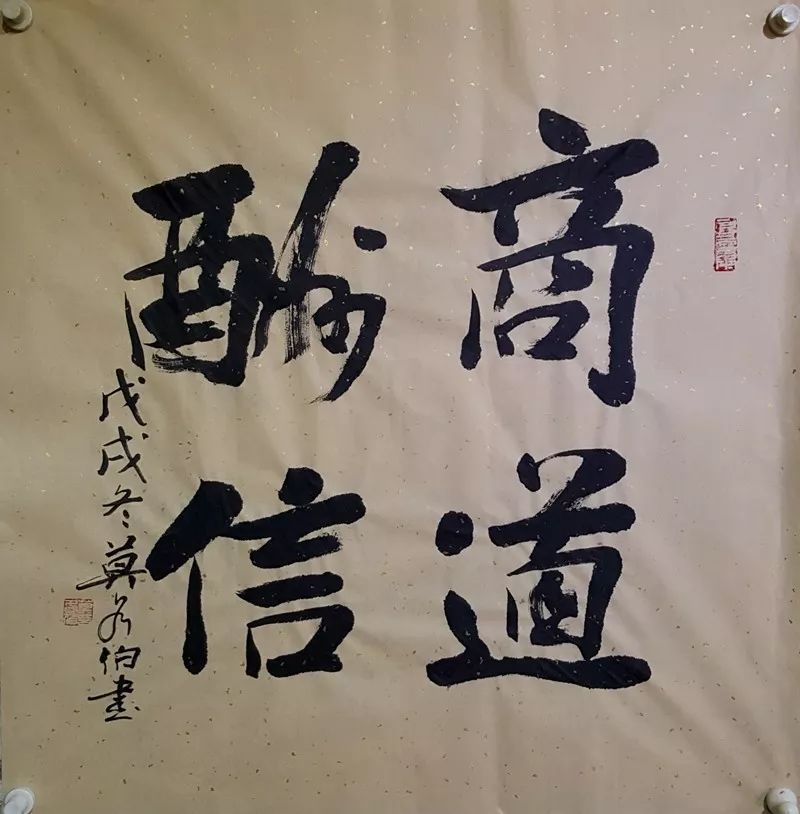 商道
酬信
戊戌冬莫伯書